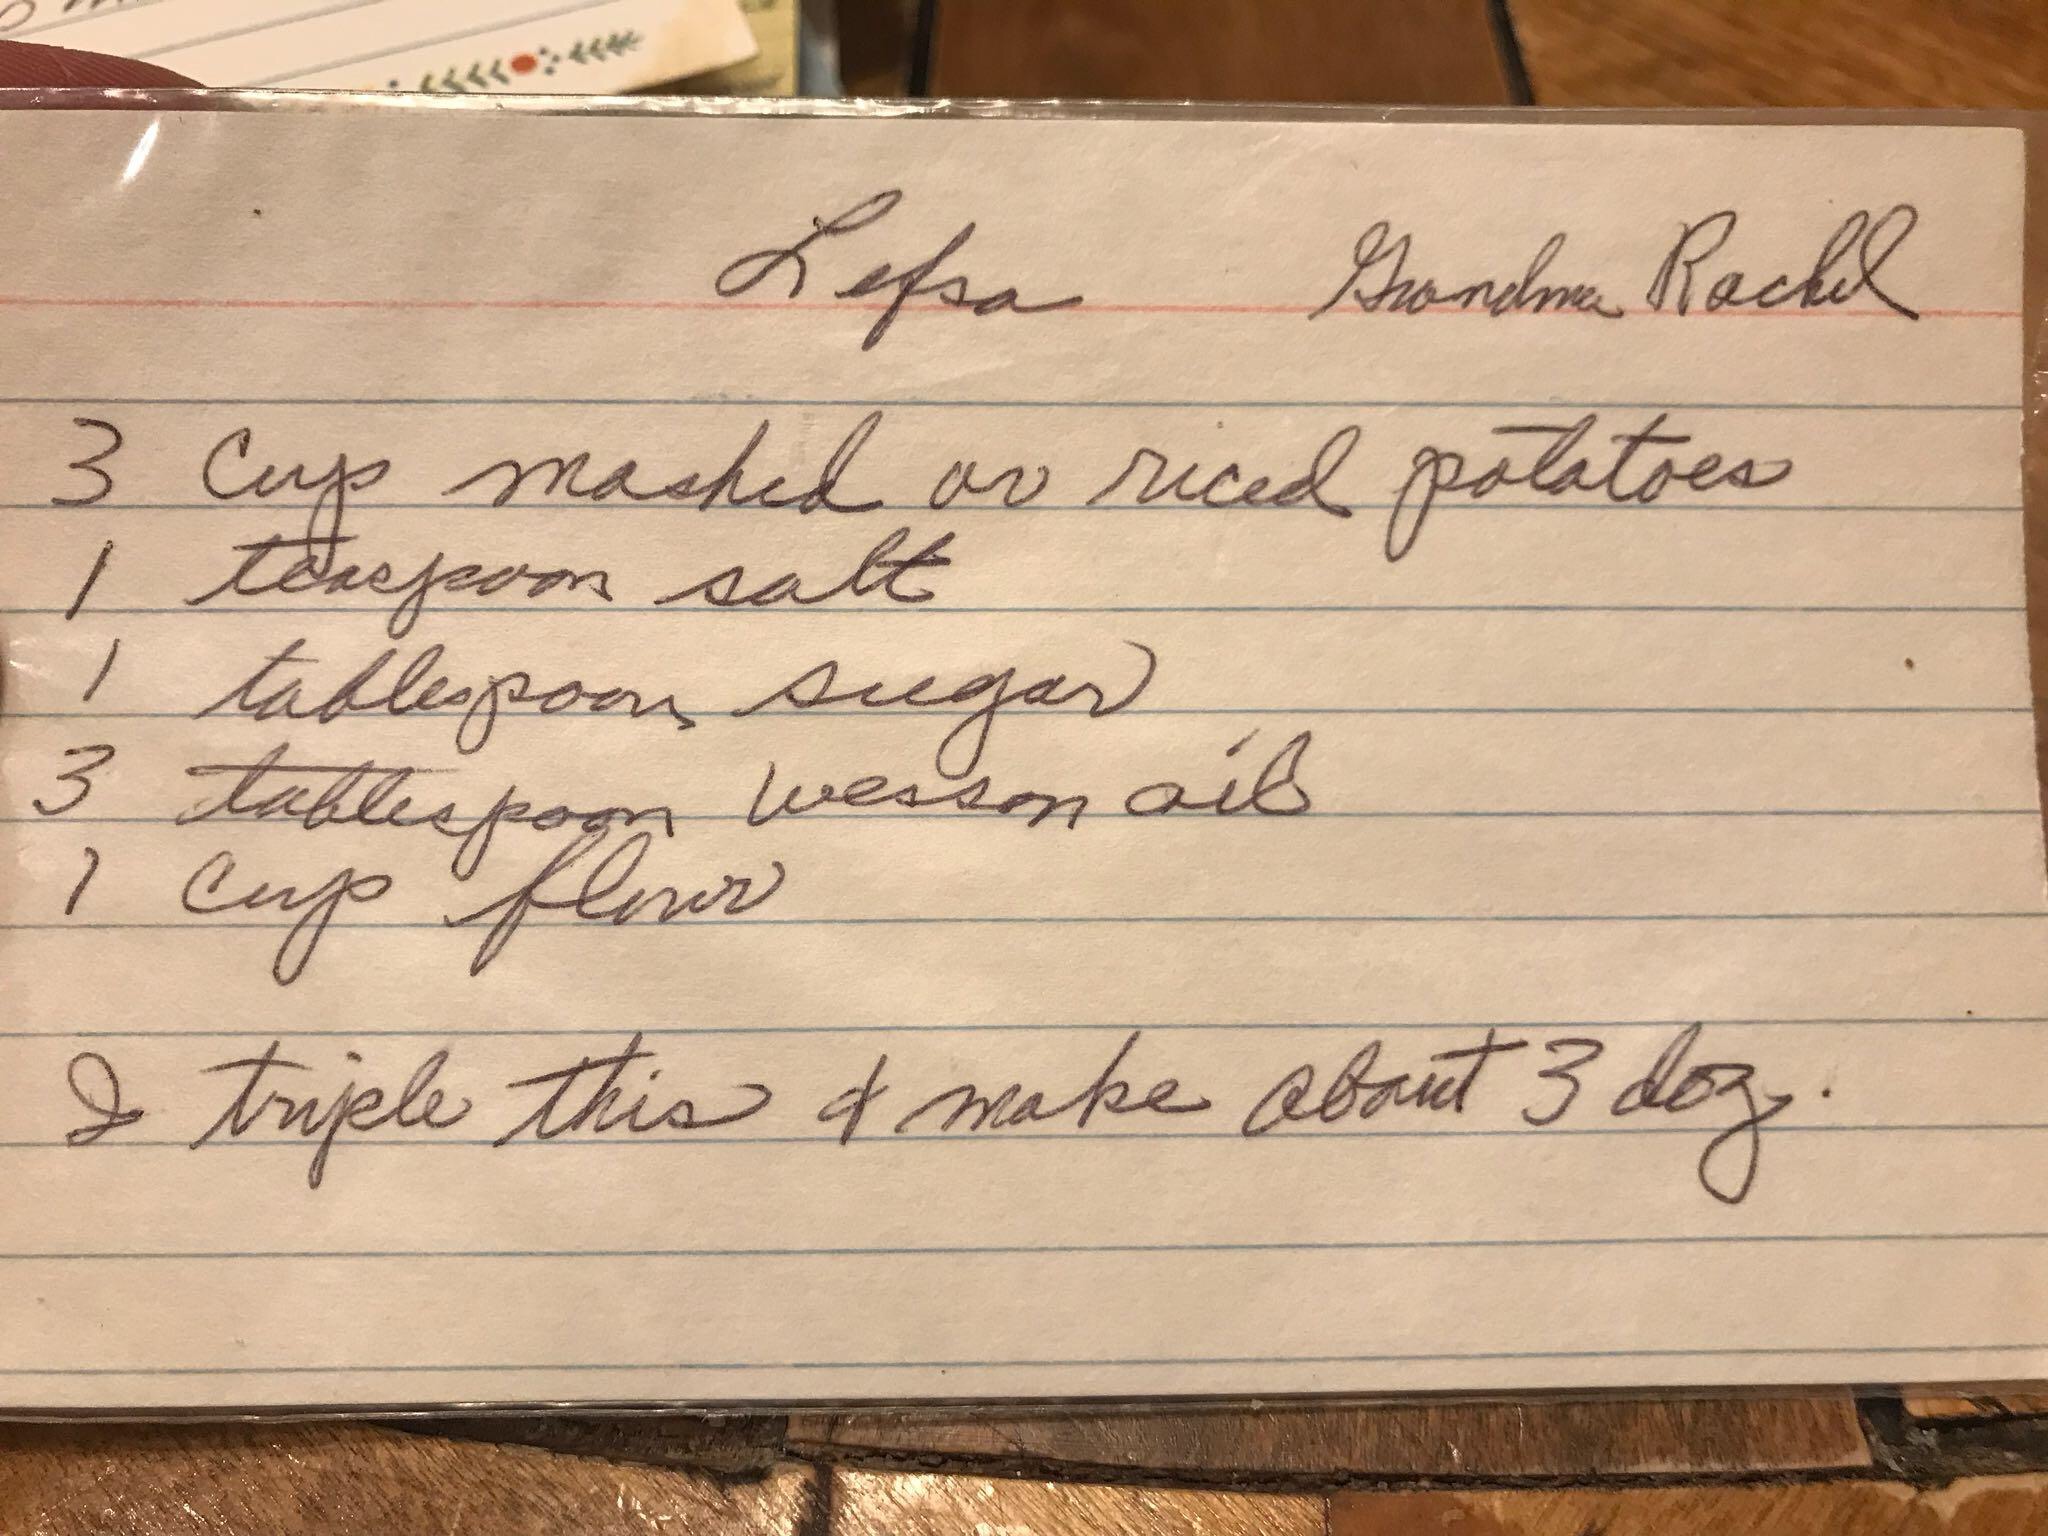 Lefsa Grandma Rachel
3 cup mashed or riced potatoes
1 teaspoon salt
1 tablespoon sugar
3 tablespoon wesson oil
1 cup flour
I triple this & make about 3 doz.